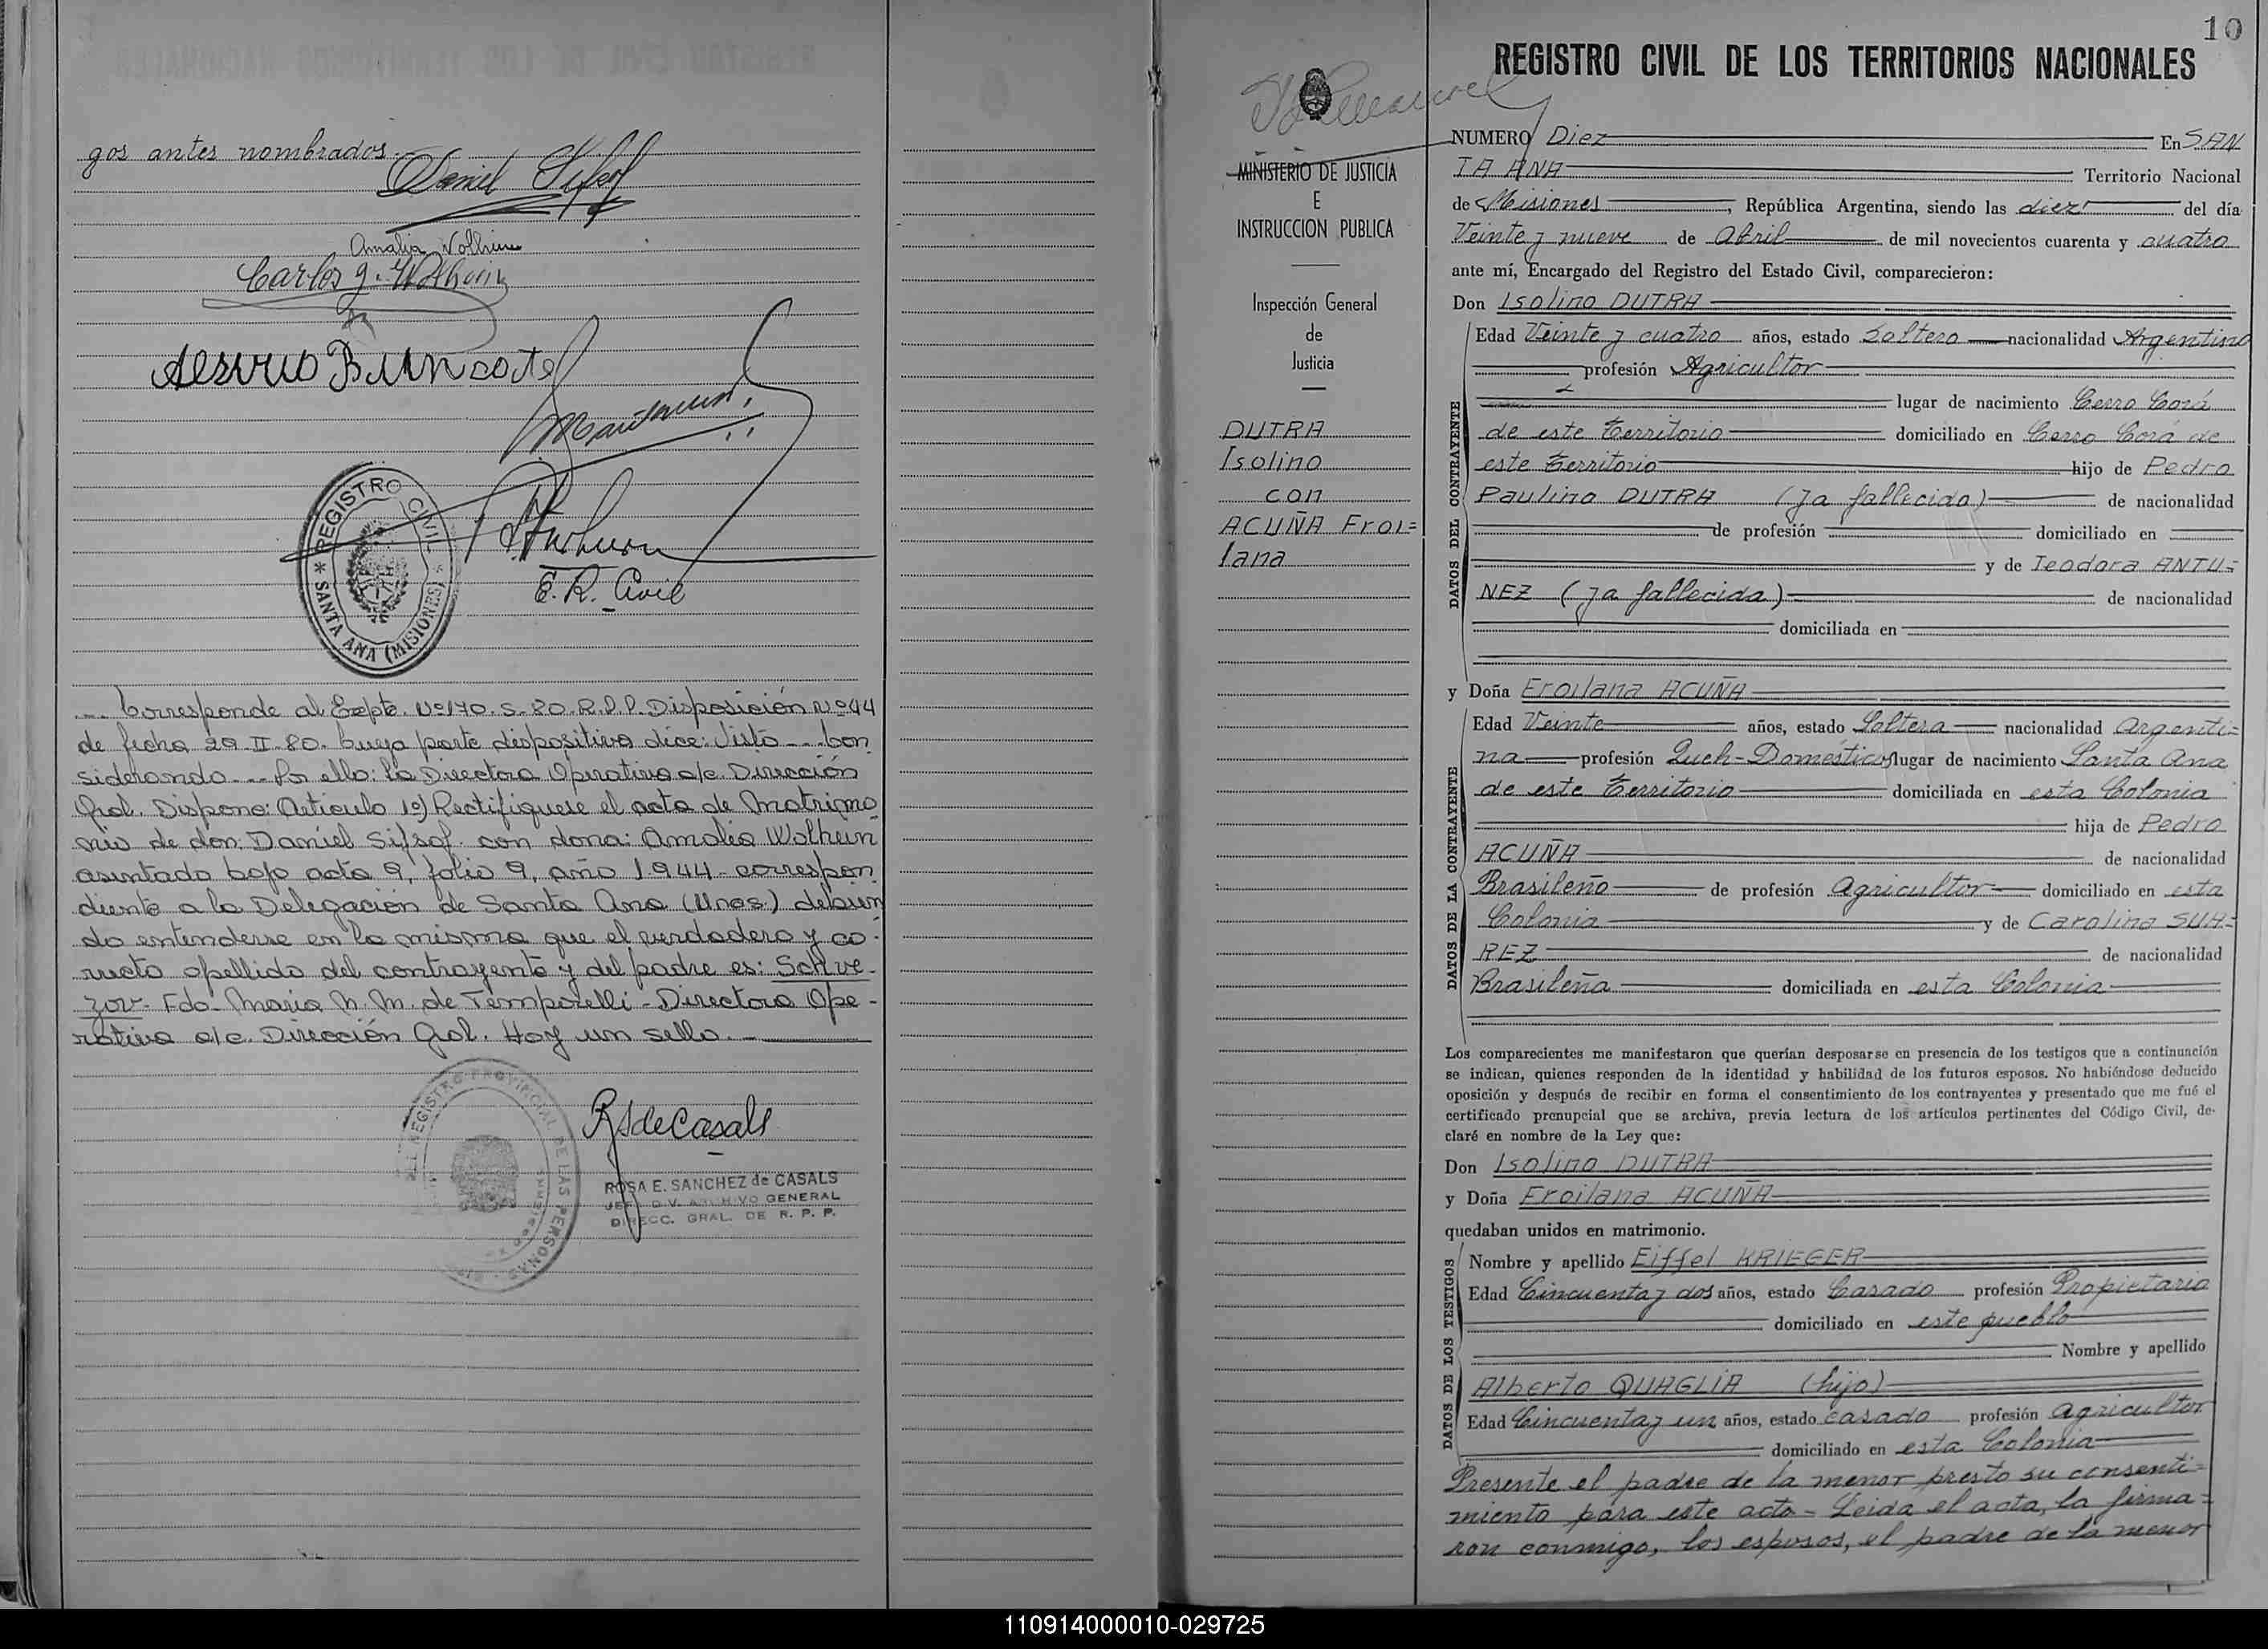 gos antes nombrados.
Daniel
Amalia Wolhein
Carlos g. Wolhein
E. R. Civil
* REGISTRO CIVIL * SANTA ANA (MISIONES)
... Corresponde al Expte. Nº 170. S-80. R.P.P. Disposición Nº 44
de fecha 29-II-80. Cuya parte dispositiva dice: Visto ... Con
siderando ... Por ello: La Directora Operativa a/c. Dirección
Gral. Dispone: Artículo 1º) Rectifíquese el acta de Matrimo
nio de don: Daniel Sifsof con doña: Amalia Wolhein
asentada bajo acta 9, folio 9, año 1.944 - correspon
diente a la Delegación de Santa Ana (Mnes.) debien
do entenderse en la misma que el verdadero y co-
rrecto apellido del contrayente y del padre es: Schve-
zov - Fdo. María N. M. de Temporelli - Directora Ope-
rativa a/c. Dirección Gral. Hay un sello. -
REGISTRO PROVINCIAL DE LAS PERSONAS
RSdeCasals
ROSA E. SANCHEZ de CASALS
JEFE DIV. ARCHIVO GENERAL
DIRECC. GRAL. DE R. P. P.
10
REGISTRO CIVIL DE LOS TERRITORIOS NACIONALES
MINISTERIO DE JUSTICIA
E
INSTRUCCION PUBLICA
Inspección General
de
Justicia
DUTRA
Isolino
con
ACUÑA Froi=
lana
NUMERO Diez En SAN
TA ANA Territorio Nacional
de Misiones, República Argentina, siendo las diez del día
Veinte y nueve de Abril de mil novecientos cuarenta y cuatro
ante mí, Encargado del Registro del Estado Civil, comparecieron:
Don Isolino DUTRA
DATOS DEL CONTRAYENTE
Edad Veinte y cuatro años, estado Soltero nacionalidad Argentino
profesión Agricultor
lugar de nacimiento Cerro Corá
de este Territorio domiciliado en Cerro Corá de
este Territorio hijo de Pedro
Paulino DUTRA (ya fallecido) de nacionalidad
de profesión domiciliado en
y de Teodora ANTU=
NEZ (ya fallecida) de nacionalidad
domiciliada en
y Doña Froilana ACUÑA
DATOS DE LA CONTRAYENTE
Edad Veinte años, estado Soltera nacionalidad Argenti=
na profesión Queh-Domésticos lugar de nacimiento Santa Ana
de este Territorio domiciliada en esta Colonia
hija de Pedro
ACUÑA de nacionalidad
Brasileño de profesión Agricultor domiciliado en esta
Colonia y de Carolina SUA=
REZ de nacionalidad
Brasileña domiciliada en esta Colonia
Los comparecientes me manifestaron que querían desposarse en presencia de los testigos que a continuación
se indican, quienes responden de la identidad y habilidad de los futuros esposos. No habiéndose deducido
oposición y después de recibir en forma el consentimiento de los contrayentes y presentado que me fué el
certificado prenupcial que se archiva, previa lectura de los artículos pertinentes del Código Civil, de-
claré en nombre de la Ley que:
Don Isolino DUTRA
y Doña Froilana ACUÑA
quedaban unidos en matrimonio.
DATOS DE LOS TESTIGOS
Nombre y apellido Eiffel KRIEGER
Edad Cincuenta y dos años, estado Casado profesión Propietario
domiciliado en este pueblo
Nombre y apellido
Alberto QUAGLIA (hijo)
Edad Cincuenta y un años, estado casado profesión Agricultor
domiciliado en esta Colonia
Presente el padre de la menor presto su consenti=
miento para este acto - Leida el acta, la firma=
ron conmigo, los esposos, el padre de la menor
110914000010-029725